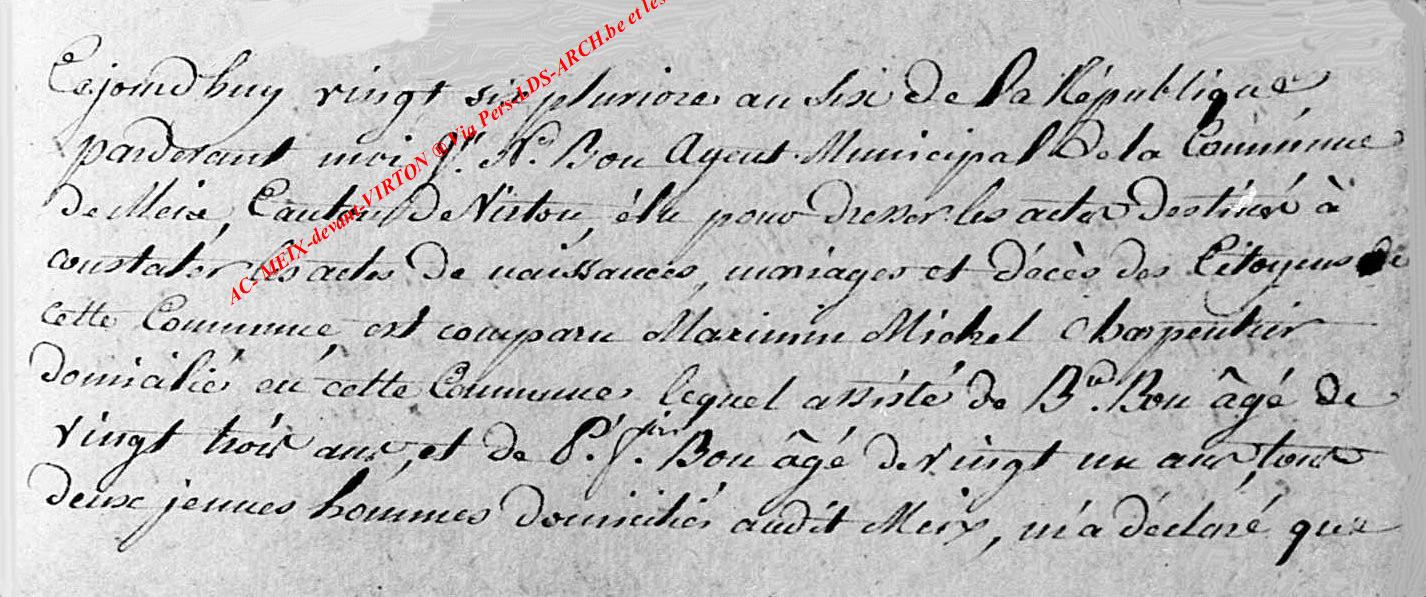 Cejourd'huy vingt six pluviose an six de la République
pardevant moi J. N. Bon Agent Municipal de la Commune
de Meix, Canton de Virton, élu pour dresser les actes destinés à
constater les actes de naissances, mariages et décès des Citoyens de
cette Commune, est comparu Maximin Michel Charpentier
domicilié en cette Commune lequel assisté de B. Bon âgé de
vingt trois ans, et de P. J. Bon âgé de vingt un ans, tous
deux jeunes hommes domiciliés audit Meix, m'a déclaré que
AC- MEIX-devant-VIRTON ® Via Pers-LDS-ARCH.be et les